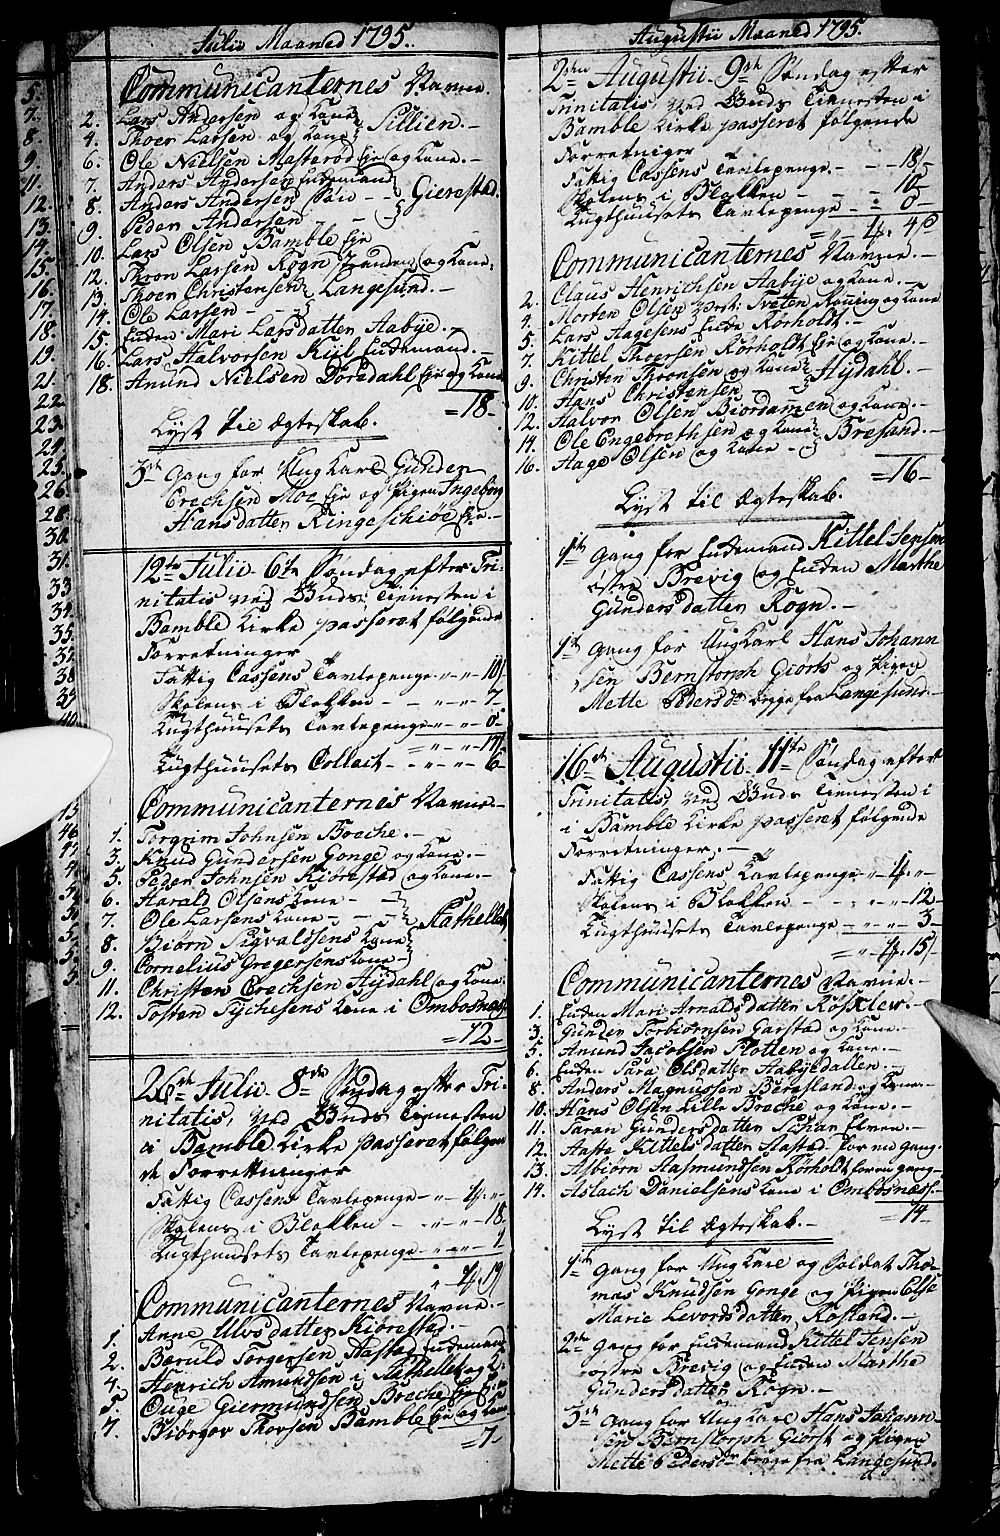 Julii Maaned 1795.
Communicanternes Navne.
2. Lars Andersen og Kone
4. Thoer Larsen og Kone Tillien.
6. Ole Nielsen Masterød Eje og Kone.
7. Anders Andersen Enkemand
8. Anders Andersen Søn Gierestad.
9. Peder Andersen
10. Lars Olsen Bamble Eje
12. Thron Larsen Rogn Stranden og Kone
13. Thoer Christensen Langesund.
14. Ole Larsen
15. Enken Mari Larsdatter Aabÿe.
16. Lars Halvorsen Kiil Enkemand.
18. Anund Nielsen Dørdahl Eje og Kone
=18-
Lyst til Ægteskab.
3de Gang for Ung Karl Gunder
Erechsen Moe Eje og Pigen Ingeborg
Hansdatter Ringeschiøe Eje.
12te Julii 6te Søndag efter Tri-
nitatis ved Guds Tienesten i
Bamble Kirke passeret følgende
Forretninger
Fattig Cassens Tavlepenge 10
Skolens i Blokken 7
Tugthuusets Tavlepenge 0
17
Tugthuusets Collect 6
Communicanternes Navne
1. Torgrim Johnsen Boche.
3. Knud Gundersen Gonge og Kone.
5. Peder Johnsen Kiørestad og Kone.
6. Harald Olsens Kone
7. Ole Larsens Kone Stathelle
8. Biørn Sigvaldsens Kone
9. Cornelius Gregersens Kone
11. Christen Erechsen Hÿdahl og Kone
12. Tosten Tÿchesens Kone i Ombosnæs
=12-
26de Julii 8de Søndag efter Tri-
nitatis, ved Guds Tienesten
i Bamble Kirke passeret følgen
de Forretninger
Fattig Cassens Tavlepenge
Skolens i Blokken 18
Tugthuusets Tavlepenge 1
19
Communicanternes Navne.
1. Anne Ulvsdatter Kiørestad.
2. Baruld Torgersen Aastad Enkemand
4. Henrich Amundsen i Stathelle og K:
5. Ouge Giermundsen Boche
7. Biørgov Thorsen Bamble Eje og Kone
=7-
Augustii Maaned 1795.
2den Augustii 9de Søndag efter
Trinitatis, ved Guds Tienesten i
Bamble Kirke passeret følgende
Forretninger
Fattig Cassens Tavlepenge 18
Skolens i Blokken 10
Tugthuusets Tavlepenge 0
4
Communicanternes Navne.
2. Claus Henrichsen Aabÿe og Kone.
4. Morten Olsen Tveten Rønning og Kone
5. Lars Aagesens Enke Rørholdt
7. Kittel Thoersen Rørholdt Eje og Kone.
9. Christen Thronsen og Kone Hÿdahl.
10. Hans Christensen
12. Halvor Olsen Biordammen og Kone.
14. Ole Engebrethsen og Kone Bresand.
16. Aage Olsen og Kone
=16-
Lyst til Ægteskab.
1ste Gang for Enkemand Kittel Jensen
østre Brevig og Enken Marthe
Gundersdatter Rogn.
1ste Gang for Ung Karl Hans Johann
sen Bernstorph Giørts og Pigen
Mette Pedersdr. begge fra Langesund.
16de Augustii 11te Søndag efter
Trinitatis, ved Guds Tienesten i
i Bamble Kirke passeret følgende
Forretninger.
Fattig Cassens Tavlepenge
Skolens i Blokken 12
Tugthuusets Tavlepenge 3
15
Communicanternes Navne.
1. Enken Mari Arnoldsdatter Rosklew.
3. Gunder Torbiørnsen Garstad og Kone.
5. Anund Jacobsen Flotten og Kone.
6. Enken Sara Olsdatter Aabÿedallen.
8. Anders Magnussen Bergsland og Kone.
10. Hans Olsen Lille Boche og Kone.
11. Saran Gundersdatter Elven.
12. Aaste Kittelsdatter Aastad for en gang.
13. Asbiørn Aasmundsen Rørholt for en gang
14. Aslach Danielsens Kone i Ombosnæss.
=14-
Lyst til Ægteskab.
1ste Gang for Ung Karl og Soldat Tho-
mas Knudsen Gonge og Pigen Else
Marie Levordsdatter Rosland.
2den Gang for Enkemand Kittel Jensen
østre Brevig og Enken Marthe
Gundersdatter Rogn.
3de Gang for Ung Karl Hans Johann-
sen Bernstorph Giørst og Pigen
Mette Pedersdr. begge fra Langesund.